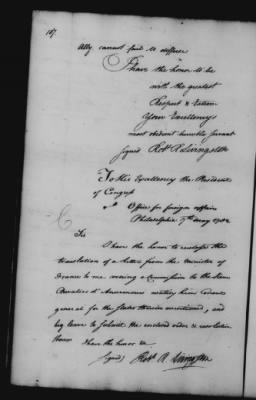 167
Ally cannot fail to diffuse
I have the honor to be
with the greatest
Respect & Esteem
Your Excellency's
most obedient humble servant
signed Robt R. Livingston
To His Excellency the President
of Congress
Office for foreign affairs
Philadelphia 9th May 1782
Sir
I have the honor to enclose the
translation of a letter from the Minister of
France to me covering a Commission to the Sieur
Chevalier d'Annemours constituting him Consul
general for the States therein mentioned, and
beg leave to submit the enclosed order & resolution
I have the honor &c
signed Robt R. Livingston